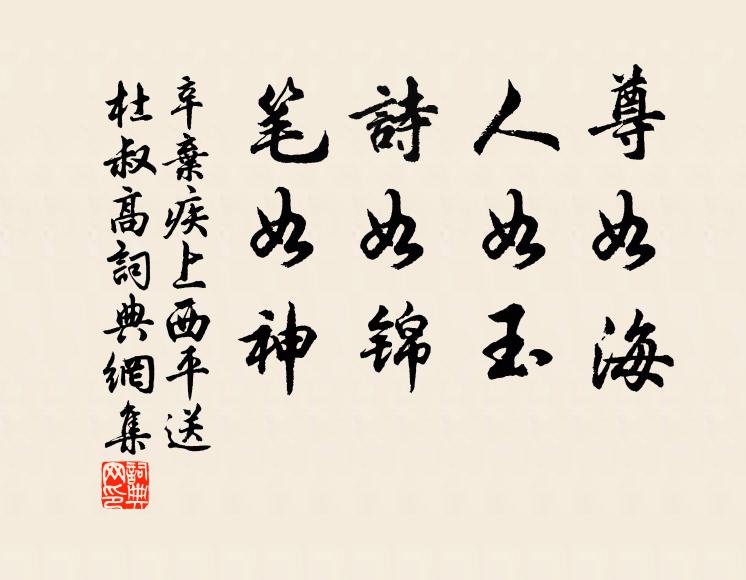 尊如海
人如玉
詩如锦
笔如神
辛棄疾上西平送
杜叔高詞典網集
詞典网印